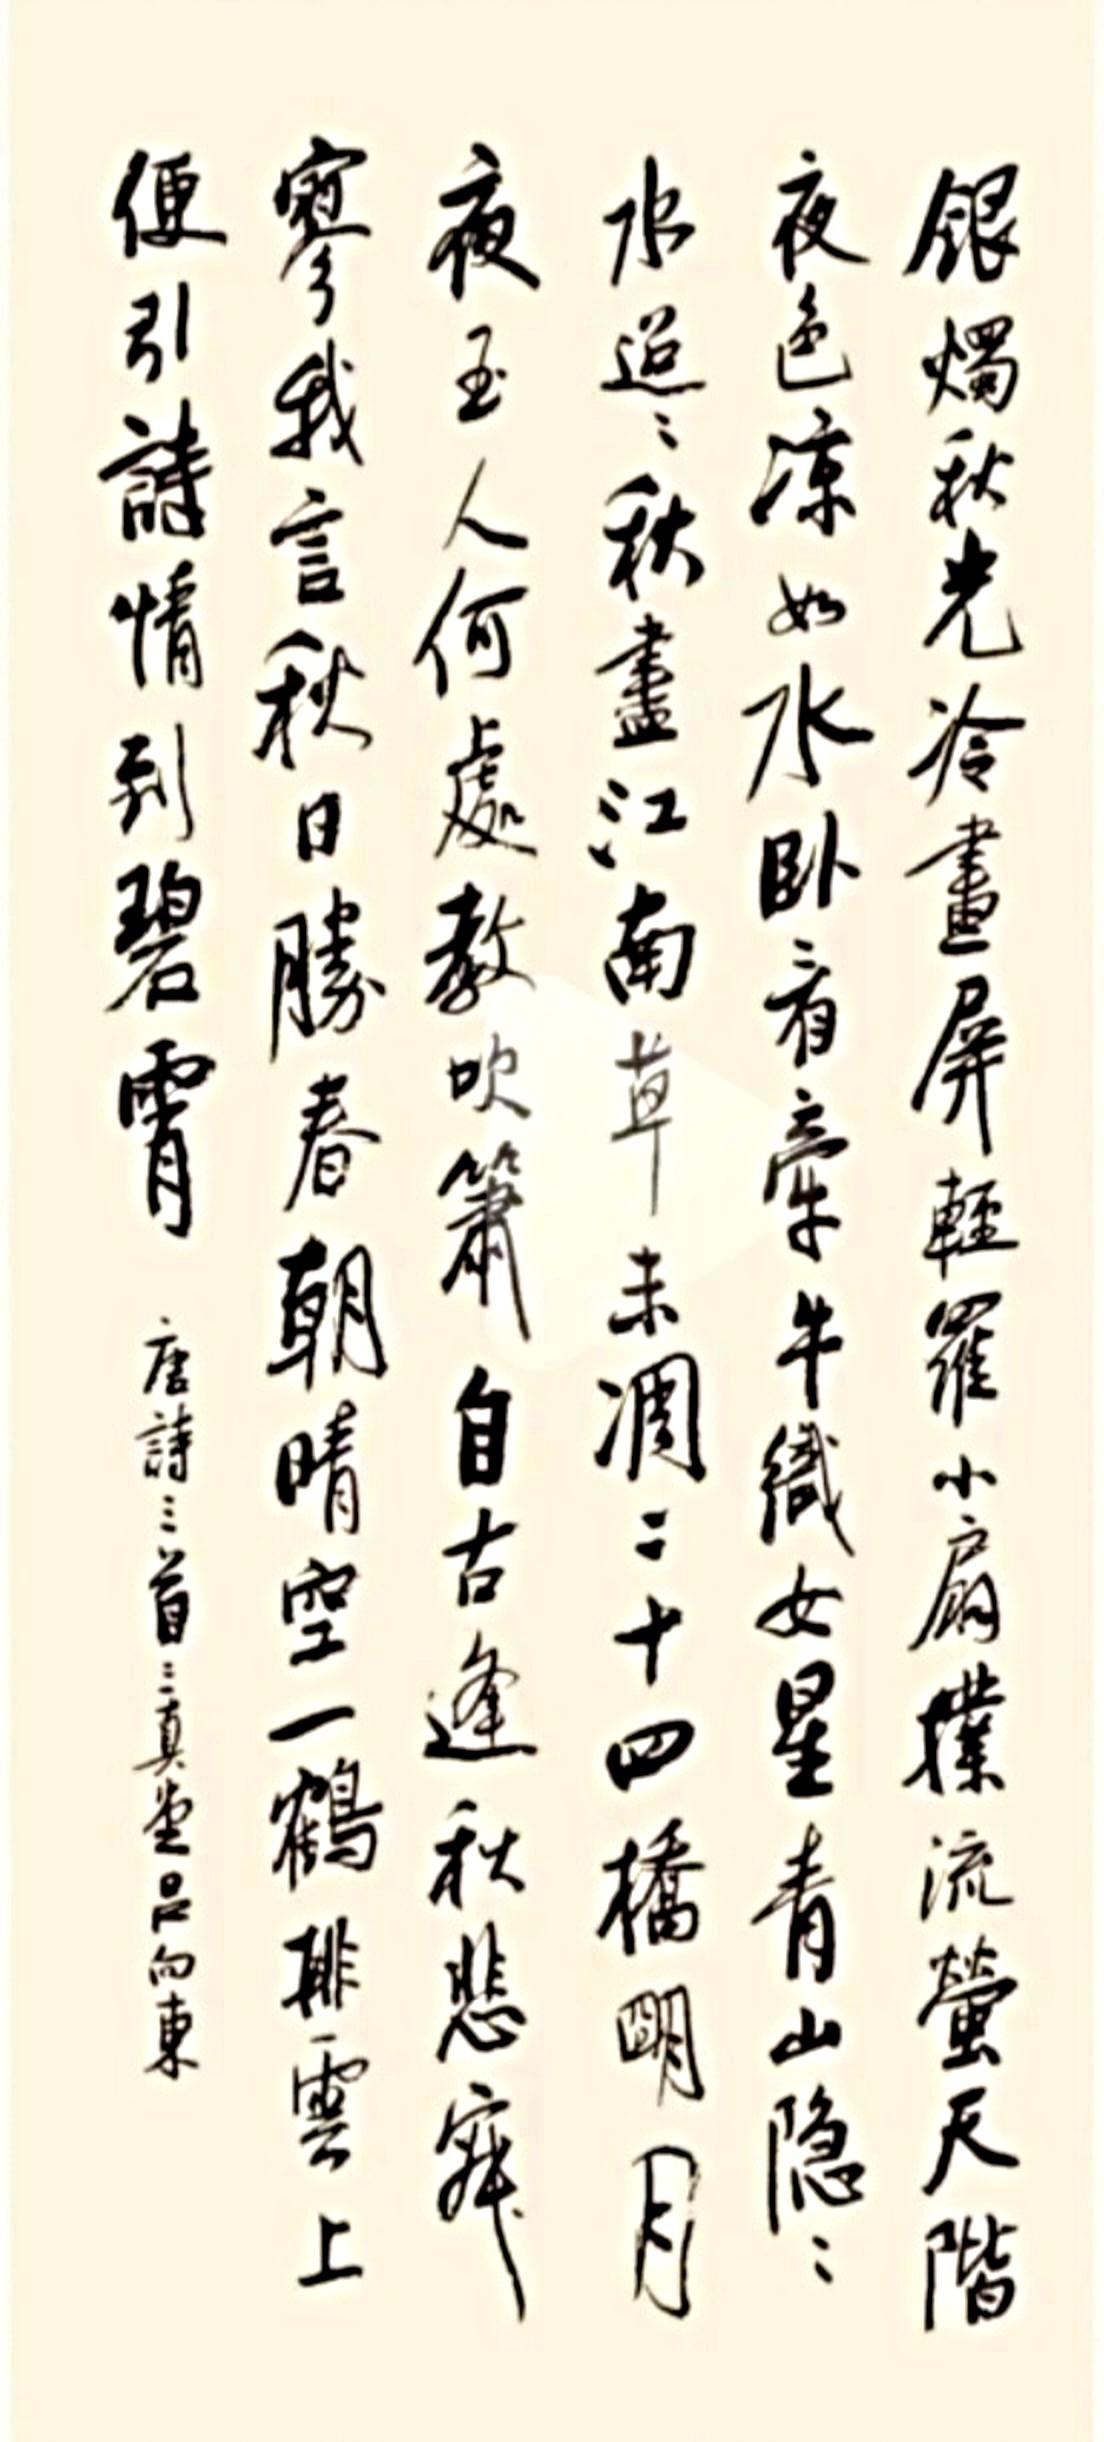 銀燭秋光冷畫屏輕羅小扇撲流螢天階
夜色凉如水卧看牽牛織女星青山隐〻
水迢〻秋盡江南草未凋二十四橋明月
夜玉人何處教吹簫自古逢秋悲寂
寥我言秋日勝春朝晴空一鶴排雲上
便引詩情到碧霄
唐詩三首三真堂吕向東